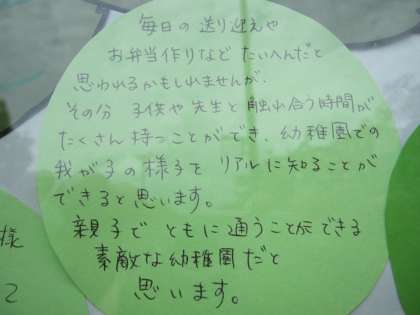 毎日の送り迎えや
お弁当作りなど たいへんだと
思われるかもしれませんが、
その分 子供や先生と触れ合う時間が
たくさん持つことができ、幼稚園での
我が子の様子を リアルに知ることが
できると思います。
親子で ともに通うことができる
素敵な幼稚園だと
思います。
様
2